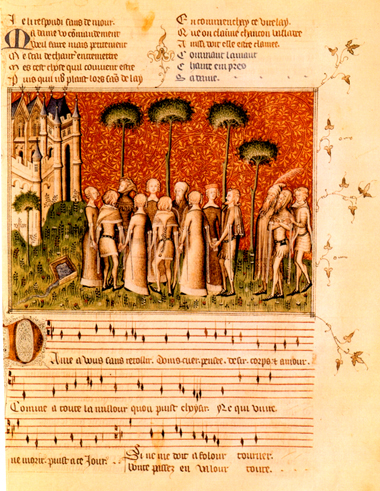 Je li respondi sans demour
Ma dame vo commandement
Weil faire mais petitement
Me scai de chant entremettre
Mes cest chose qui convient estre
Puis quil vous plaist lors sans delay
Encommencay ce virelay
Que on claimme chancon
Ainsi doit elle estre
Comment lamant
chante empres
sa dame
Dame a vous sans retollir. Doins cuer. pensee. desir. corps. & amour.
Comme a toute la millour quon puist choysir. Ne qui vivre
ne morir. puist a ce jour. Si ne me doit a folour tourner
vous passez en valour toute.